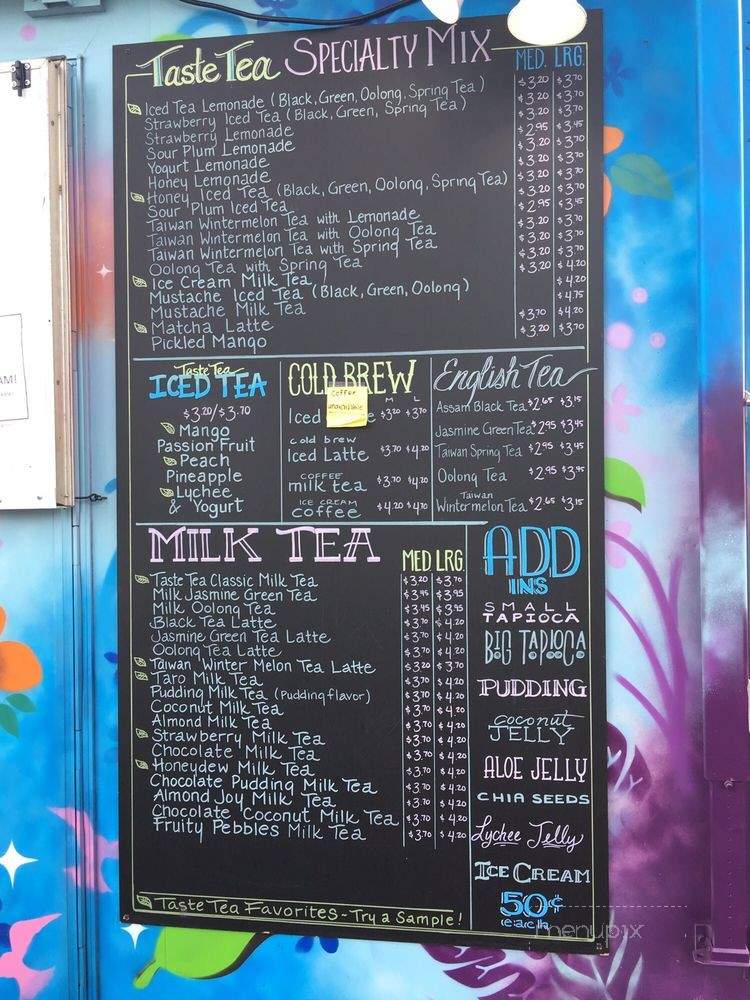 Taste Tea SPECIALTY MIX MED. LRG.
Iced Tea Lemonade (Black, Green, Oolong, Spring Tea) $3.20 $3.70
Strawberry Iced Tea (Black, Green, Spring Tea) $3.20 $3.70
Strawberry Lemonade $3.20 $3.70
Sour Plum Lemonade $2.95 $3.45
Yogurt Lemonade $3.20 $3.70
Honey Lemonade $3.20 $3.70
Honey Iced Tea (Black, Green, Oolong, Spring Tea) $3.20 $3.70
Sour Plum Iced Tea $3.20 $3.70
Taiwan Wintermelon Tea with Lemonade $2.95 $3.45
Taiwan Wintermelon Tea with Oolong Tea $3.20 $3.70
Taiwan Wintermelon Tea with Spring Tea $3.20 $3.70
Oolong Tea with Spring Tea $3.20 $3.70
Ice Cream Milk Tea $3.20 $4.20
Mustache Iced Tea (Black, Green, Oolong) $4.20
Mustache Milk Tea $4.75
Matcha Latte $3.70 $4.20
Pickled Mango $3.20 $3.70
Taste Tea
ICED TEA
$3.20/$3.70
Mango
Passion Fruit
Peach
Pineapple
Lychee
& Yogurt
COLD BREW
coffee
unavailable
M L
Iced $3.20 $3.70
cold brew
Iced Latte $3.70 $4.20
COFFEE
milk tea $3.70 $4.20
ICE CREAM
coffee $4.20 $4.70
English Tea
Assam Black Tea $2.65 $3.15
Jasmine Green Tea $2.95 $3.45
Taiwan Spring Tea $2.95 $3.45
Oolong Tea $2.95 $3.45
Taiwan
Wintermelon Tea $2.65 $3.15
MILK TEA MED LRG.
Taste Tea Classic Milk Tea $3.20 $3.70
Milk Jasmine Green Tea $3.45 $3.95
Milk Oolong Tea $3.45 $3.95
Black Tea Latte $3.70 $4.20
Jasmine Green Tea Latte $3.70 $4.20
Oolong Tea Latte $3.70 $4.20
Taiwan Winter Melon Tea Latte $3.20 $3.70
Taro Milk Tea $3.70 $4.20
Pudding Milk Tea (Pudding flavor) $3.70 $4.20
Coconut Milk Tea $3.70 $4.20
Almond Milk Tea $3.70 $4.20
Strawberry Milk Tea $3.70 $4.20
Chocolate Milk Tea $3.70 $4.20
Honeydew Milk Tea $3.70 $4.20
Chocolate Pudding Milk Tea $3.70 $4.20
Almond Joy Milk Tea $3.70 $4.20
Chocolate Coconut Milk Tea $3.70 $4.20
Fruity Pebbles Milk Tea $3.70 $4.20
Taste Tea Favorites - Try a Sample!
ADD
INS
SMALL
TAPIOCA
BIG TAPIOCA
PUDDING
coconut
JELLY
ALOE JELLY
CHIA SEEDS
Lychee Jelly
ICE CREAM
50¢
each
menupix
AM!